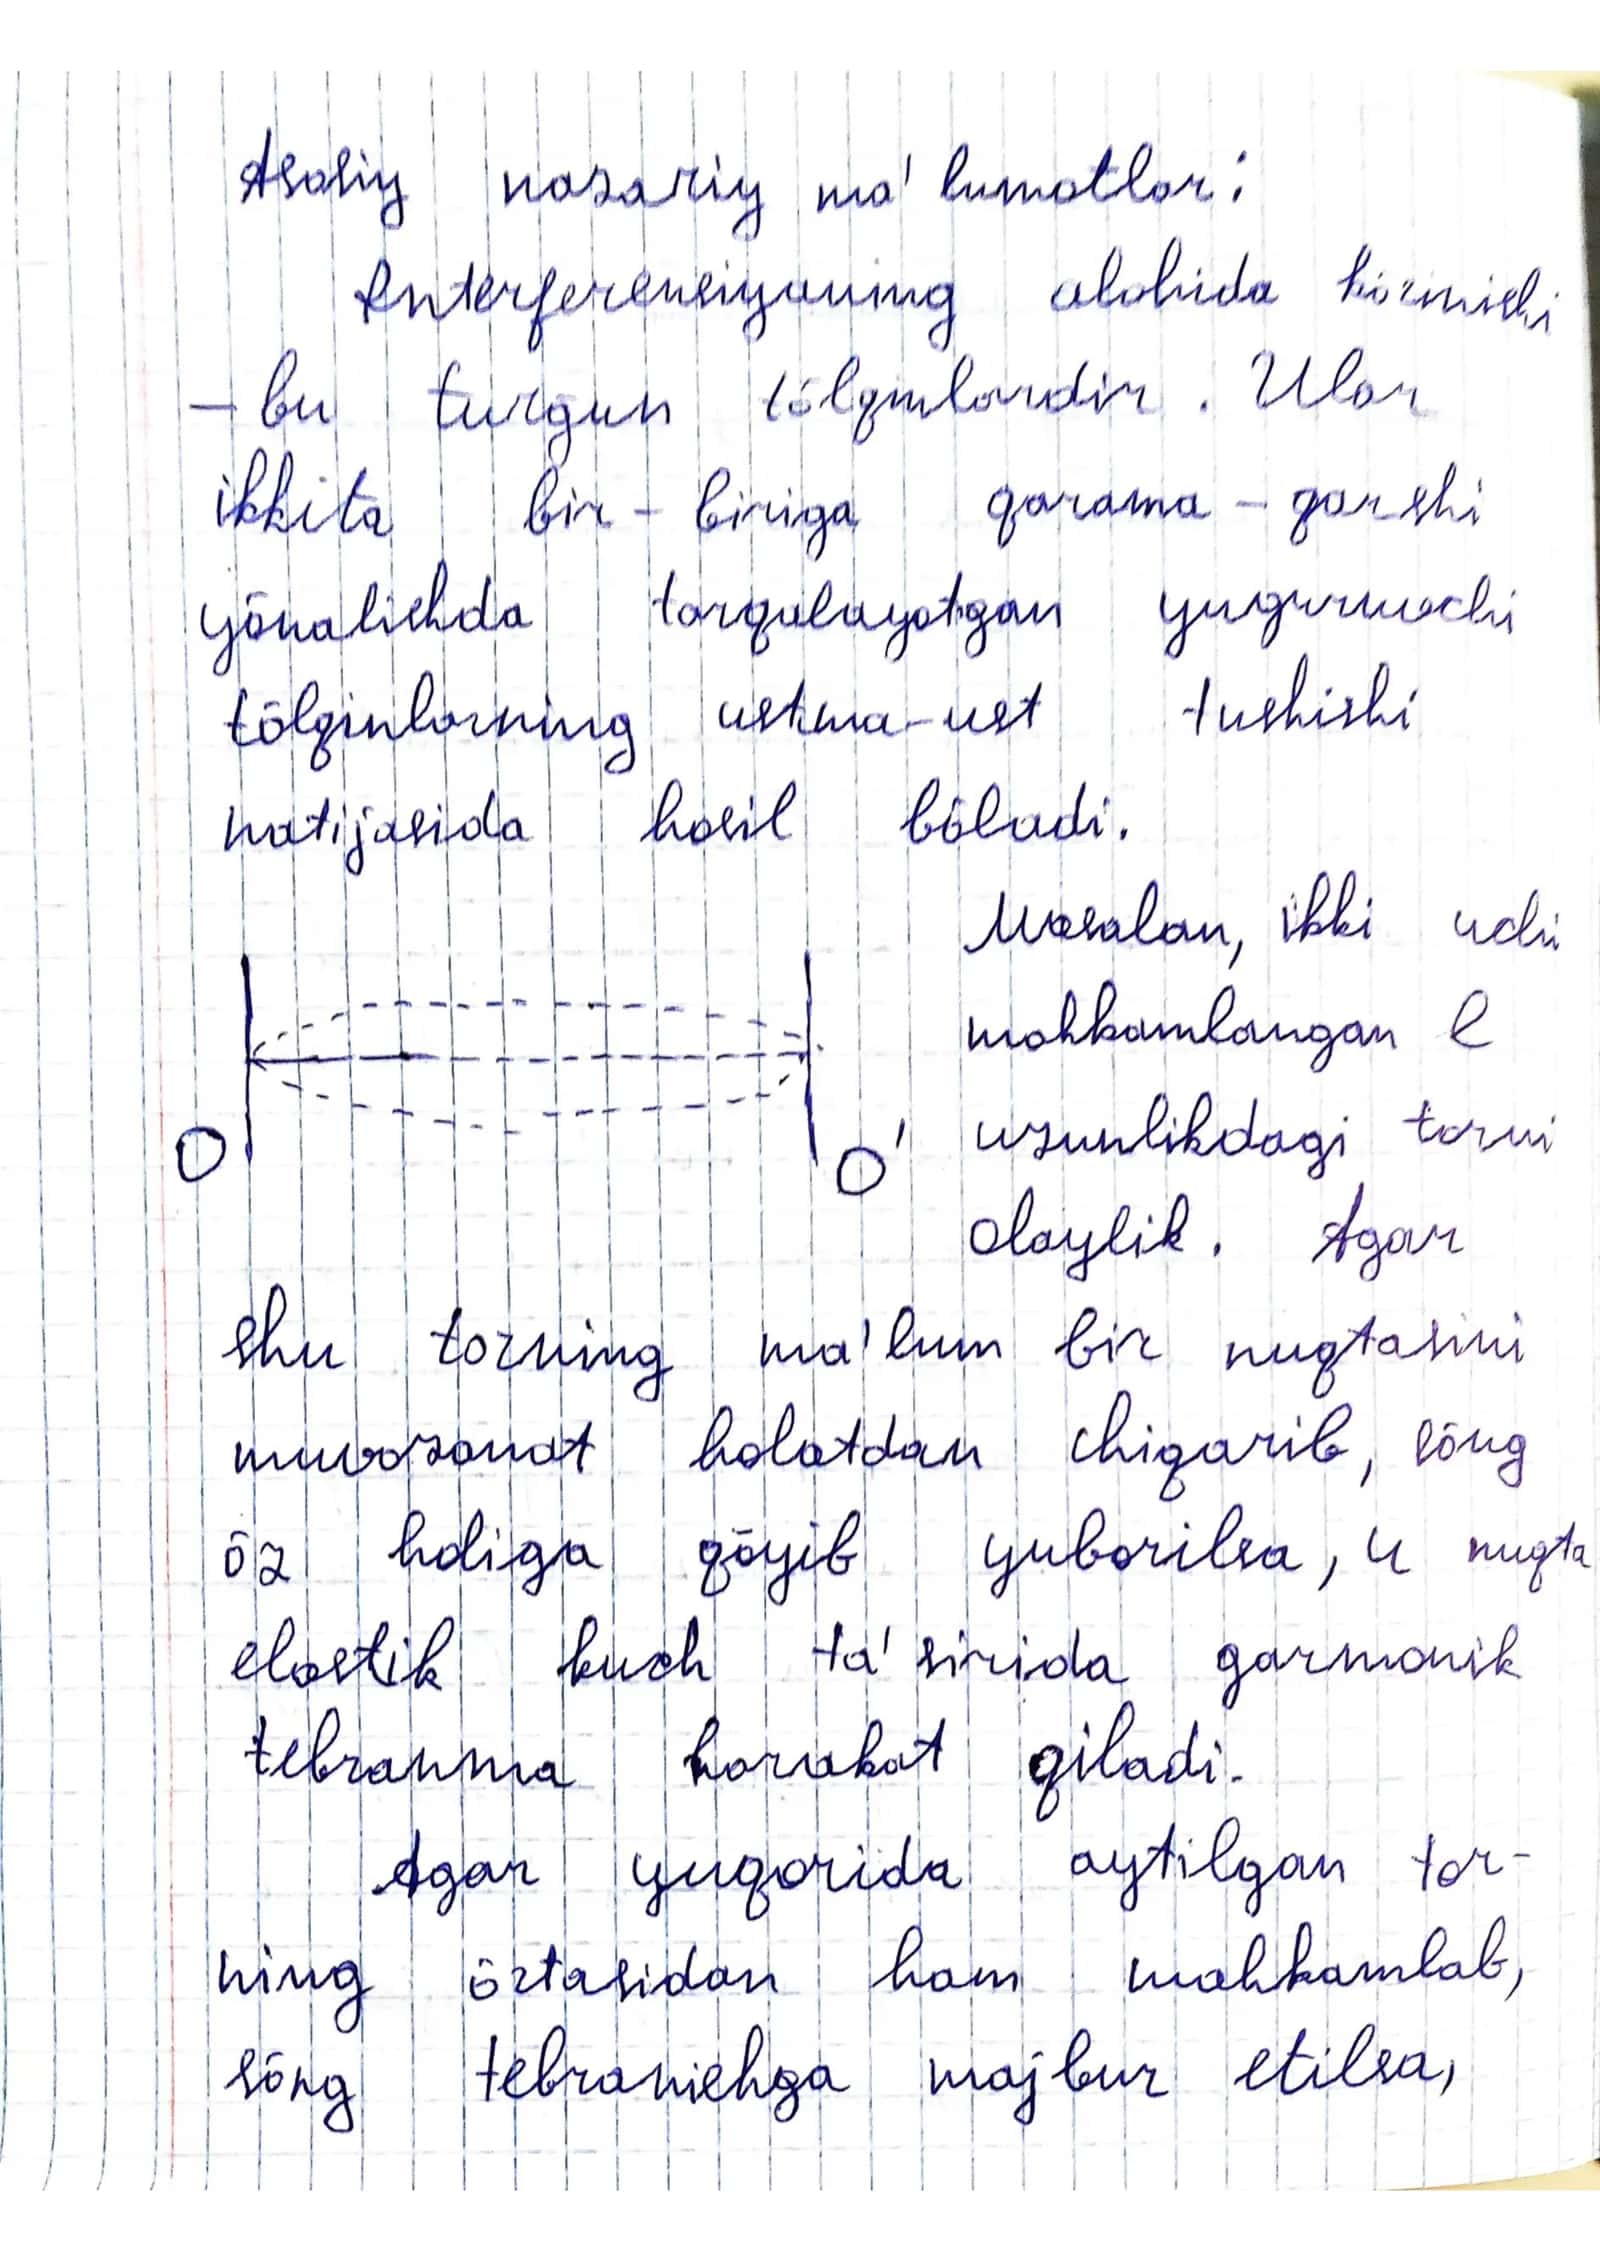 Asosiy nazariy ma'lumotlar:
Interferensiyaning alohida kōrinishi
– bu turgun tōlqinlardir. Ular
ikkita bir-biriga qarama-qarshi
yōnalishda tarqalayotgan yuguruvchi
tōlqinlarning ustma-ust tushishi
natijasida hosil bōladi.
Masalan, ikki uchi
mahkamlangan l
uzunlikdagi torni
olaylik. Agar
O O'
shu torning ma'lum bir nuqtasini
muvozanat holatdan chiqarib, sōng
ōz holiga qōyib yuborilsa, u nuqta
elastik kuch ta'sirida garmonik
tebranma harakat qiladi.
Agar yuqorida aytilgan tor-
ning ōrtasidan ham mahkamlab,
sōng tebranishga majbur etilsa,